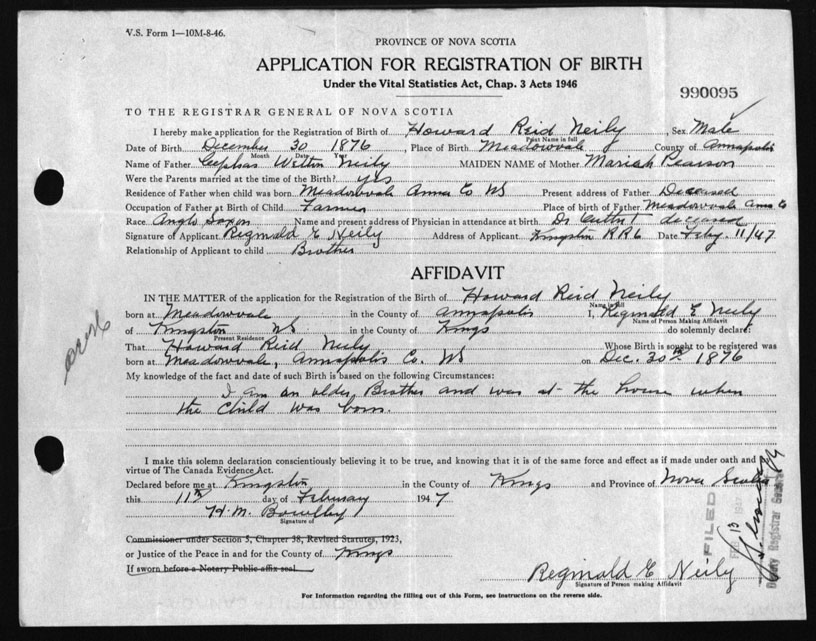 V.S. Form 1—10M-8-46.
PROVINCE OF NOVA SCOTIA
APPLICATION FOR REGISTRATION OF BIRTH
Under the Vital Statistics Act, Chap. 3 Acts 1946
990095
TO THE REGISTRAR GENERAL OF NOVA SCOTIA
I hereby make application for the Registration of Birth of Howard Reid Neily, Sex Male
Print Name in full
Date of Birth December 30 1876, Place of Birth Meadowvale County of Annapolis
Month Date Year
Name of Father Cephas Welton Neily MAIDEN NAME of Mother Mariah Pearson
Were the Parents married at the time of the Birth? yes
Residence of Father when child was born Meadowvale Anna Co NS Present address of Father Deceased
Occupation of Father at Birth of Child Farmer Place of birth of Father Meadowvale Anna Co
Race Anglo Saxon Name and present address of Physician in attendance at birth Dr deceased
Signature of Applicant Reginald E Neily Address of Applicant Kingston RR6 Date Feby. 11/47
Relationship of Applicant to child Brother
AFFIDAVIT
IN THE MATTER of the application for the Registration of the Birth of Howard Reid Neily
Name in full
born at Meadowvale in the County of Annapolis I, Reginald E Neily
Name of Person Making Affidavit
of Kingston NS in the County of Kings do solemnly declare:
Present Residence
That Howard Reid Neily Whose Birth is sought to be registered was
born at Meadowvale, Annapolis Co. NS on Dec. 30th 1876
My knowledge of the fact and date of such Birth is based on the following Circumstances:
I am an older Brother and was at the house when
the Child was born.
I make this solemn declaration conscientiously believing it to be true, and knowing that it is of the same force and effect as if made under oath and by
virtue of The Canada Evidence Act.
Declared before me at Kingston in the County of Kings and Province of Nova Scotia
this 11th day of February 1947
H. M. Bowlby
Signature of
Commissioner under Section 5, Chapter 38, Revised Statutes, 1923,
or Justice of the Peace in and for the County of Kings
If sworn before a Notary Public affix seal
Reginald E Neily
Signature of Person making Affidavit
For Information regarding the filling out of this Form, see instructions on the reverse side.
FILED
Deputy Registrar General